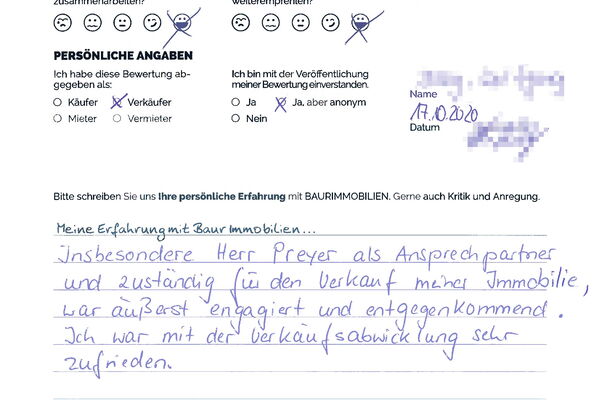 zusammenarbeiten?
weiterempfehlen?
PERSÖNLICHE ANGABEN
Ich habe diese Bewertung ab-
gegeben als:
Käufer Verkäufer
Mieter Vermieter
Ich bin mit der Veröffentlichung
meiner Bewertung einverstanden.
Ja Ja, aber anonym
Nein
Name
17.10.2020
Datum
Bitte schreiben Sie uns Ihre persönliche Erfahrung mit BAURIMMOBILIEN. Gerne auch Kritik und Anregung.
Meine Erfahrung mit Baur Immobilien...
Insbesondere Herr Preyer als Ansprechpartner
und zuständig für den Verkauf meiner Immobilie,
war äußerst engagiert und entgegenkommend.
Ich war mit der Verkaufsabwicklung sehr
zufrieden.